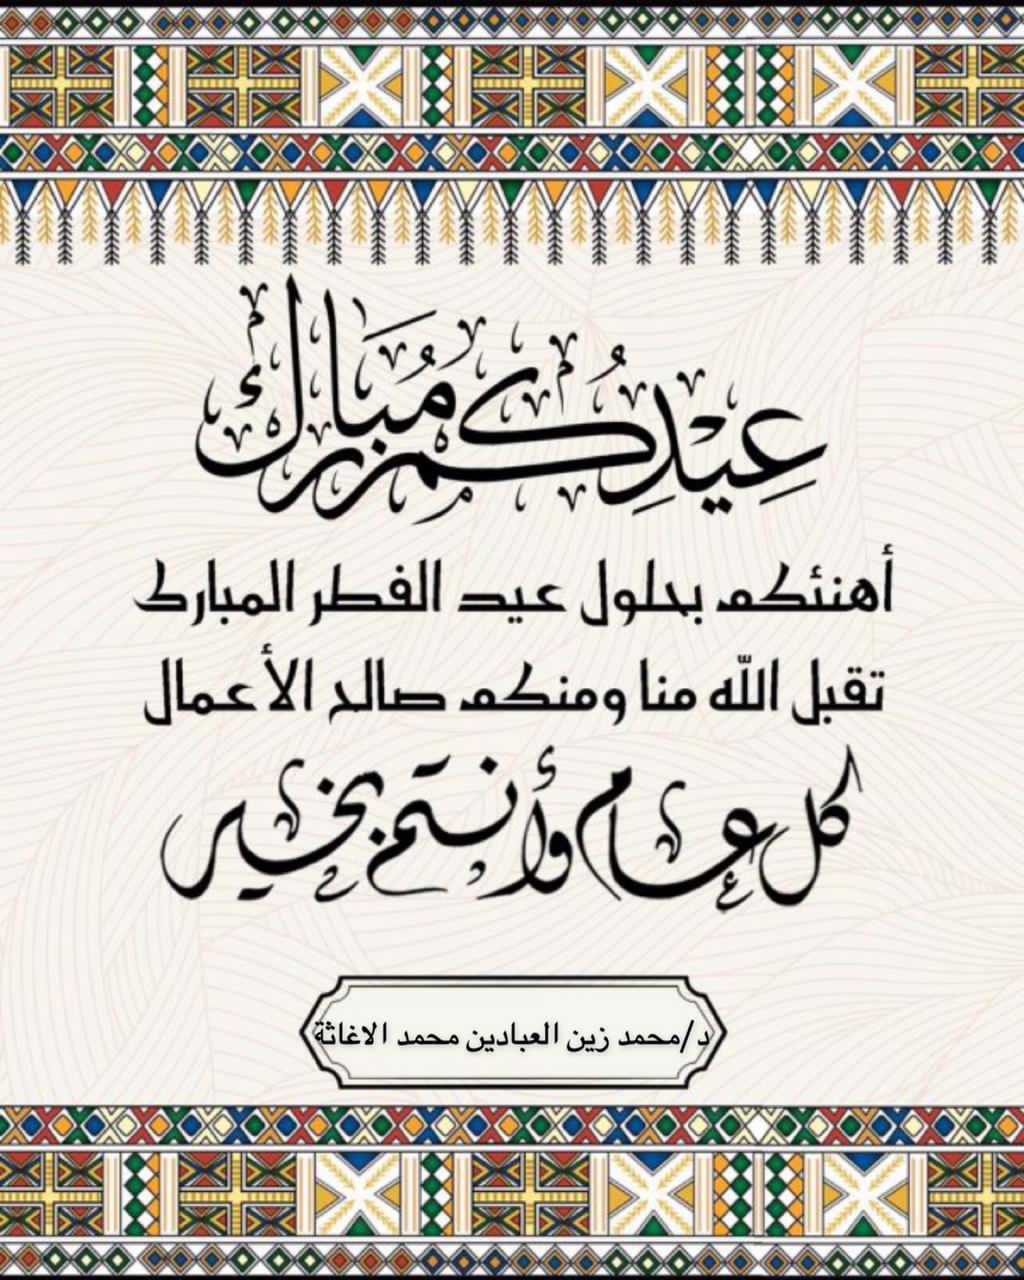 عِيْدِكُم مُبَارك
أهنئكم بحلول عيد الفطر المبارك
تقبل اللّه منا ومنكم صالح الأعمال
كل عام وأنتم بخير
د/محمد زين العبادين محمد الاغاثة